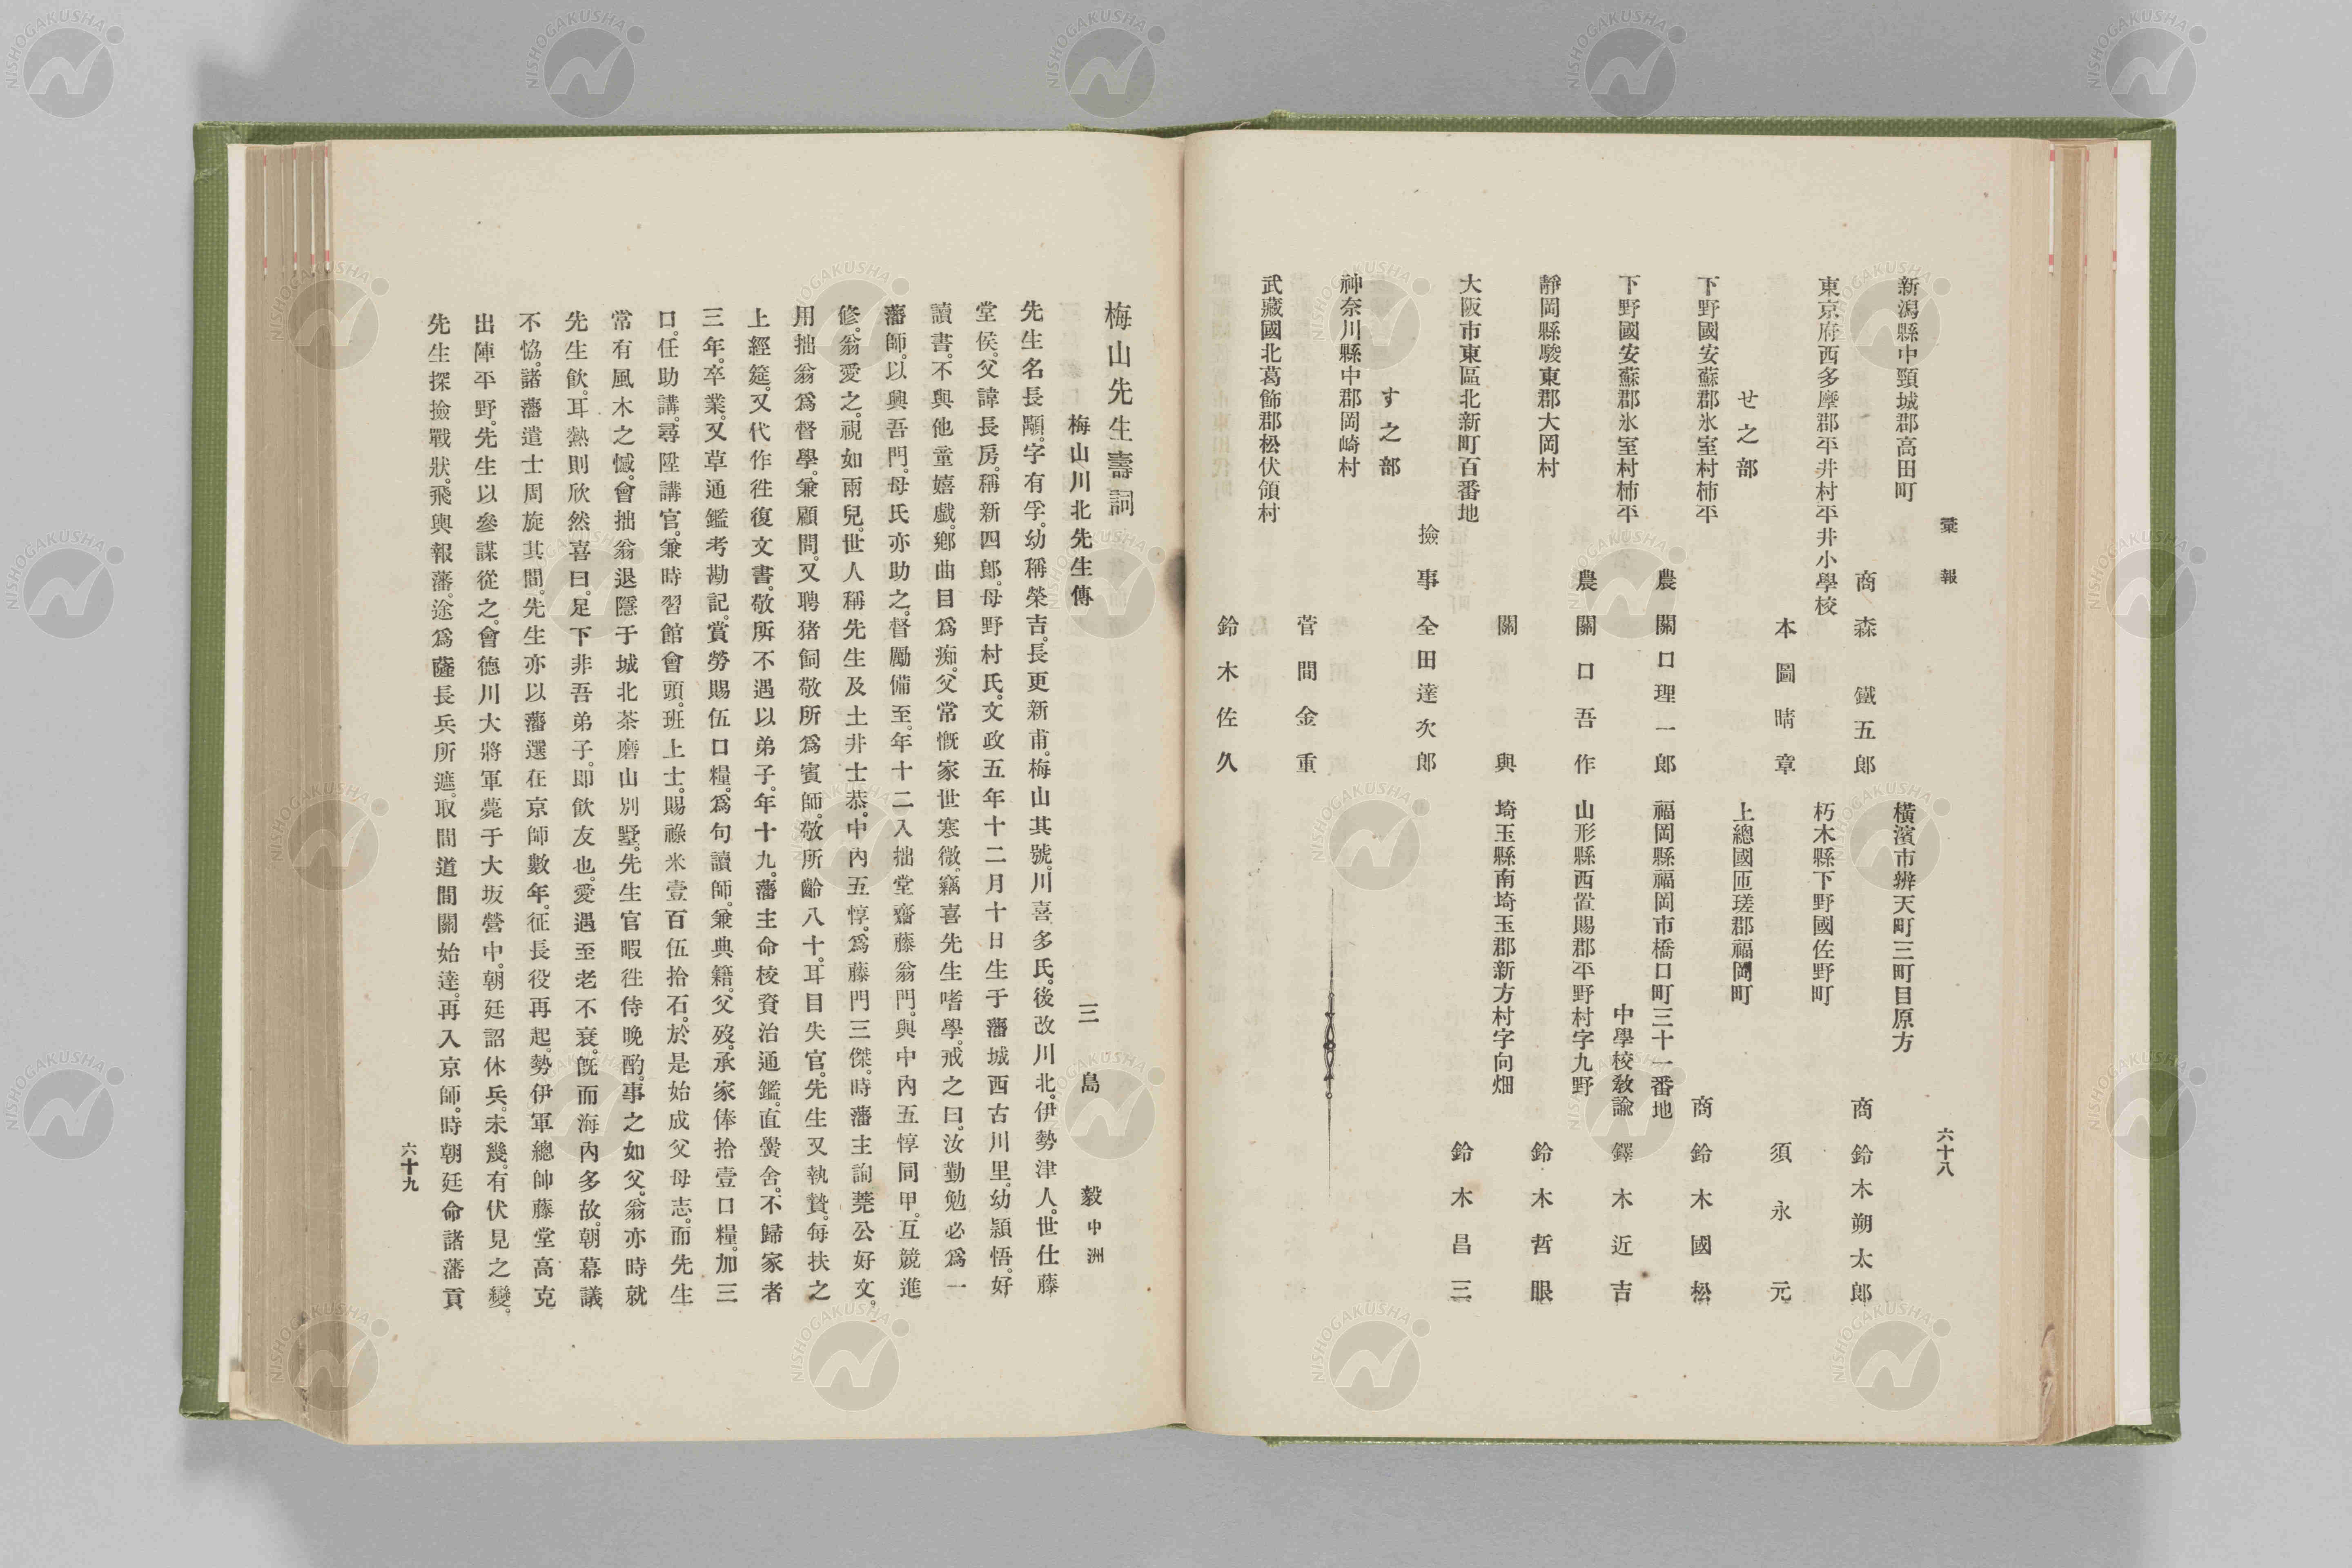 彙報
六十八
新潟縣中頸城郡高田町
商 森鐵五郎
東京府西多摩郡平井村平井小學校
本圖晴章
せ之部
下野國安蘇郡氷室村柿平
農 關口理一郎
下野國安蘇郡氷室村柿平
農 關口吾作
靜岡縣駿東郡大岡村
關與
大阪市東區北新町百番地
撿事 全田達次郎
す之部
神奈川縣中郡岡崎村
菅間金重
武藏國北葛飾郡松伏領村
鈴木佐久
橫濱市辨天町三町目原方
商 鈴木朔太郎
朽木縣下野國佐野町
須永元
上總國匝瑳郡福岡町
商 鈴木國松
福岡縣福岡市橋口町三十一番地
中學校敎諭 鐸木近吉
山形縣西置賜郡平野村字九野
鈴木哲眼
埼玉縣南埼玉郡新方村字向畑
鈴木昌三
梅山先生壽詞
梅山川北先生傳 三島毅中洲
先生名長顒。字有孚。幼稱榮吉。長更新甫。梅山其號。川喜多氏。後改川北。伊勢津人。世仕藤
堂侯。父諱長房。稱新四郎。母野村氏。文政五年十二月十日生于藩城西古川里。幼穎悟。好
讀書。不與他童嬉戲。鄕曲目爲痴。父常慨家世寒微。竊喜先生嗜學。戒之曰。汝勤勉必爲一
藩師。以興吾門。母氏亦助之。督勵備至。年十二入拙堂齋藤翁門。與中內五惇同甲。互競進
修。翁愛之。視如兩兒。世人稱先生及土井士恭。中內五惇。爲藤門三傑。時藩主詢蕘公好文。
用拙翁爲督學。兼顧問。又聘猪飼敬所爲賓師。敬所齡八十。耳目失官。先生又執贄。每扶之
上經筵。又代作徃復文書。敬所不遇以弟子。年十九。藩主命校資治通鑑。直黌舍。不歸家者
三年。卒業。又草通鑑考勘記。賞勞賜伍口糧。爲句讀師。兼典籍。父歿。承家俸拾壹口糧。加三
口。任助講。尋陞講官。兼時習館會頭。班上士。賜祿米壹百伍拾石。於是始成父母志。而先生
常有風木之憾。會拙翁退隱于城北茶磨山別墅。先生官暇徃侍晚酌。事之如父。翁亦時就
先生飮。耳熱則欣然喜曰。足下非吾弟子。卽飮友也。愛遇至老不衰。旣而海內多故。朝幕議
不恊。諸藩遣士周旋其間。先生亦以藩選在京師數年。征長役再起。勢伊軍總帥藤堂高克
出陣平野。先生以參謀從之。會德川大將軍薨于大坂營中。朝廷詔休兵。未幾。有伏見之變。
先生探撿戰狀。飛輿報藩。途爲薩長兵所遮。取間道間關始達。再入京師。時朝廷命諸藩貢
六十九